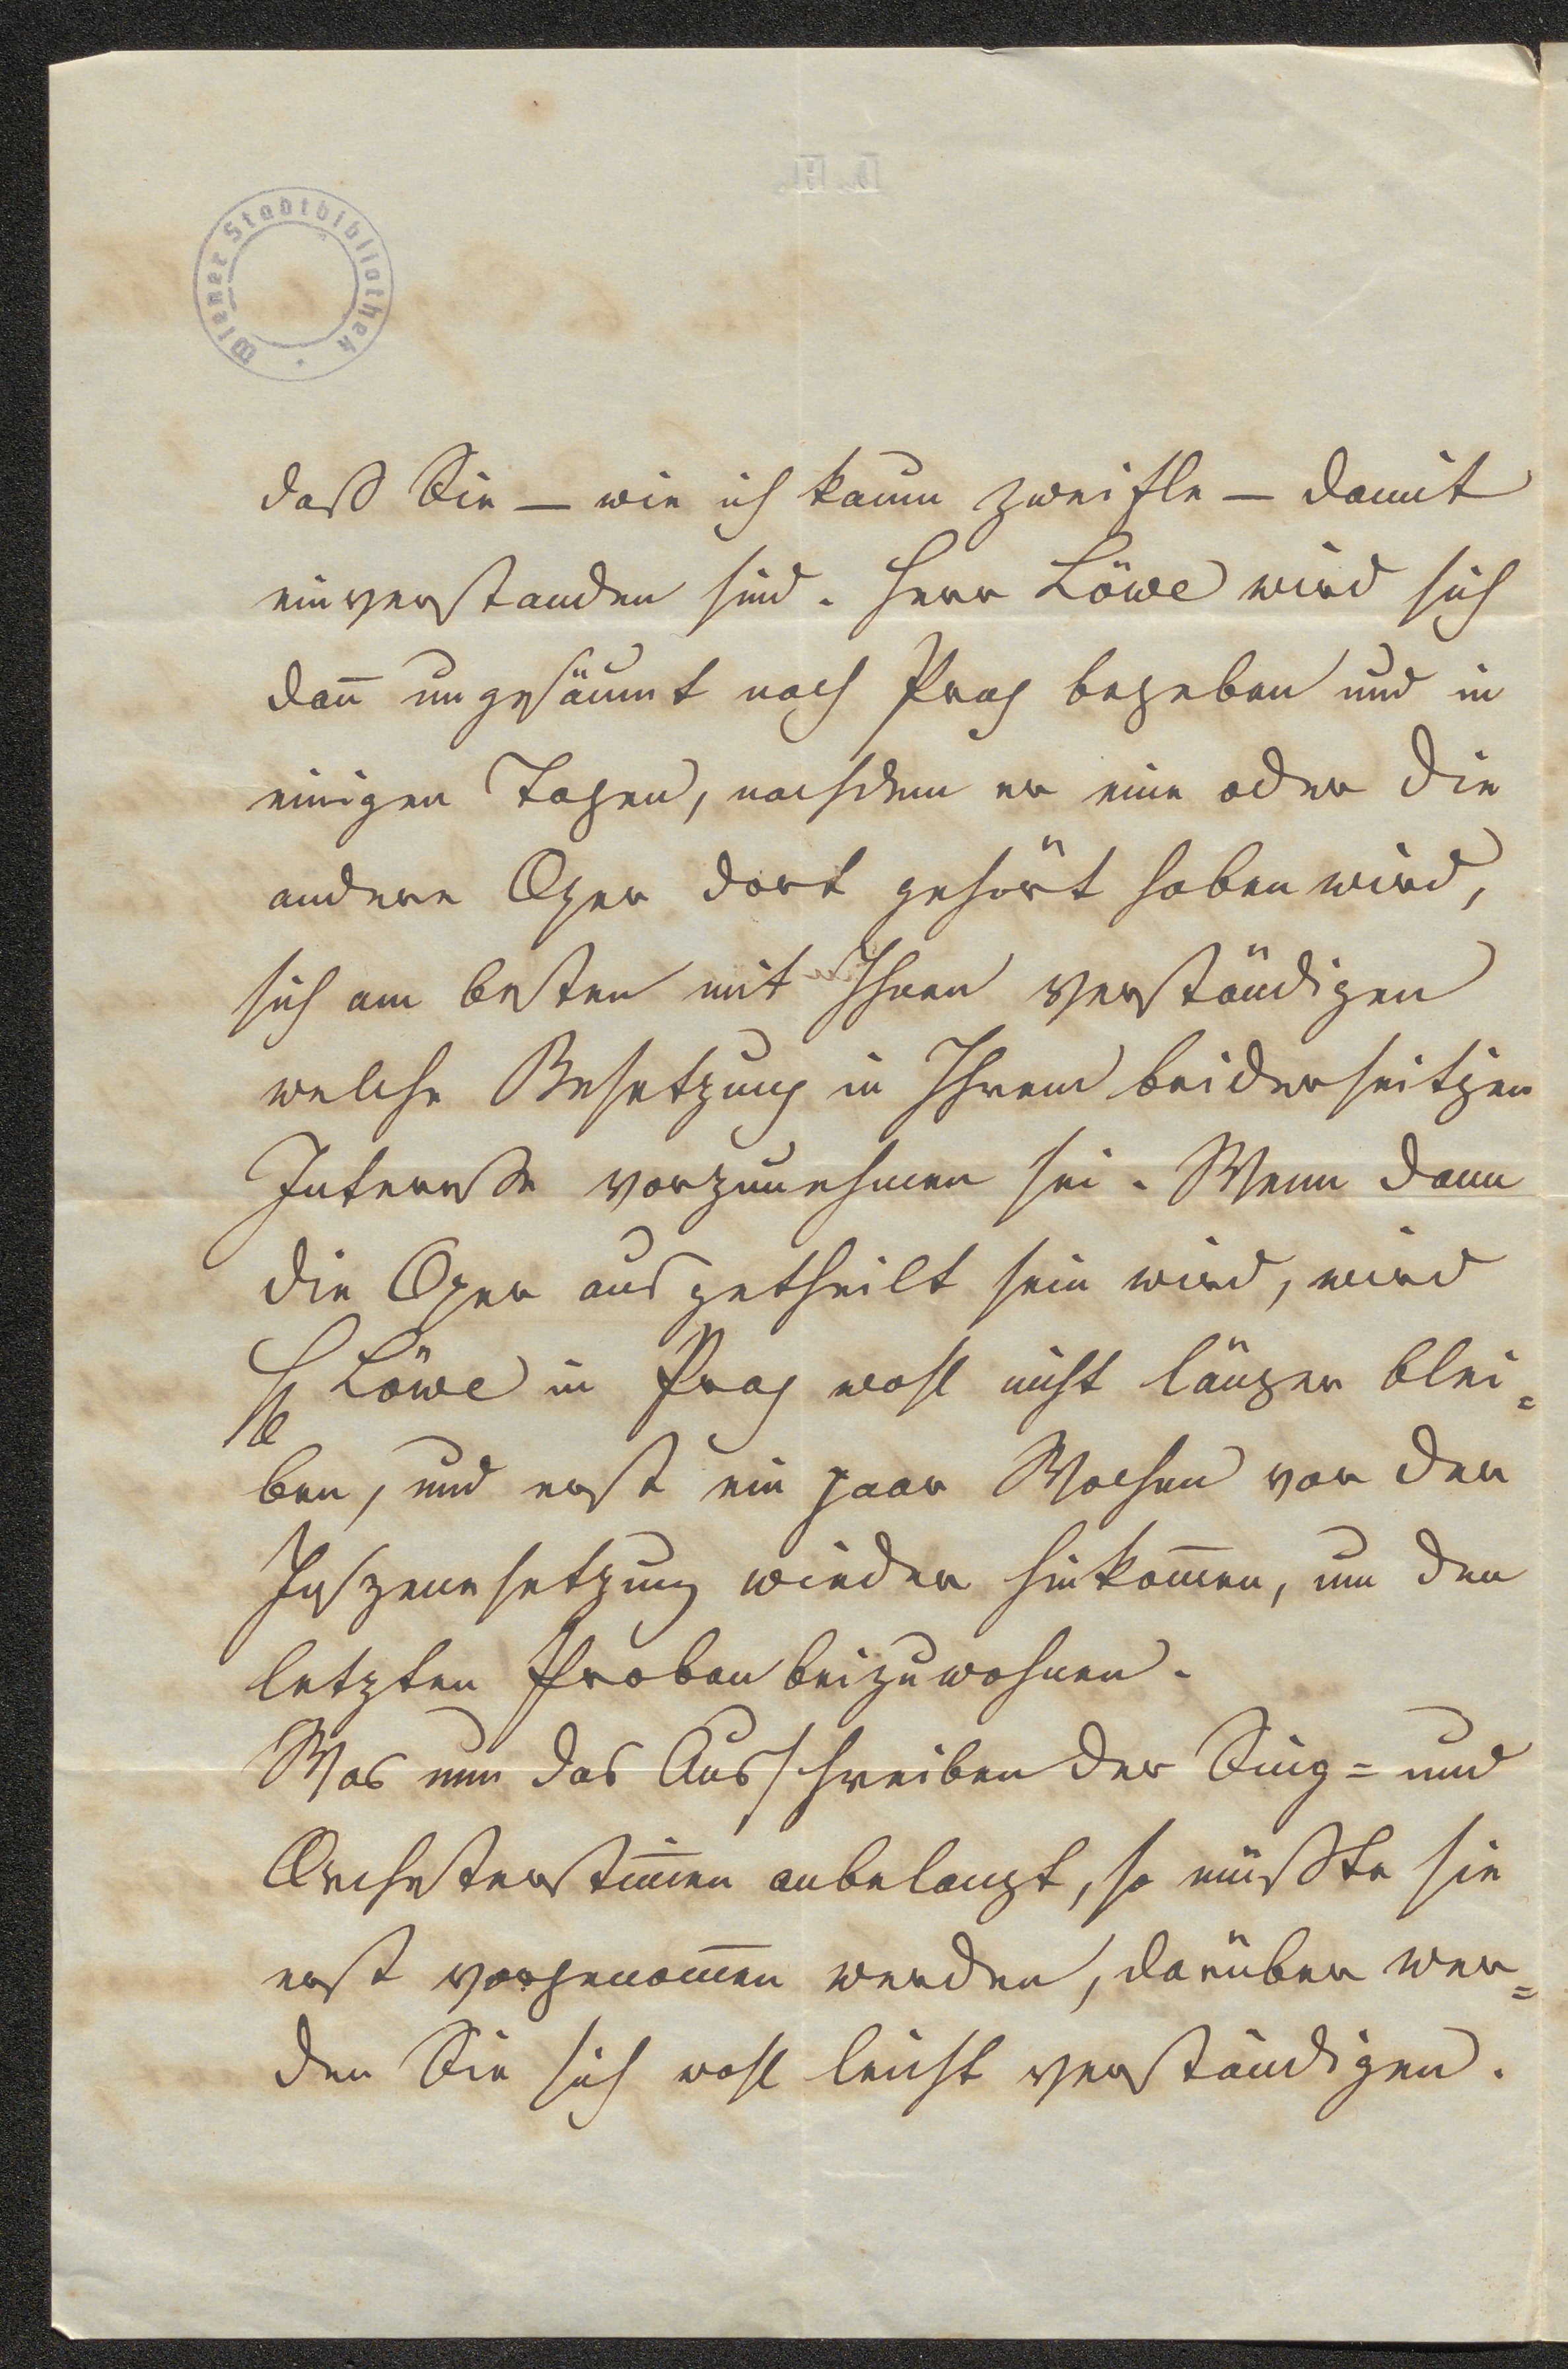 Wiener Stadtbibliothek
daß Sie – wie ich kaum zweifle – damit
einverstanden sind. Herr Löwe wird sich
dan̅ ungesäumt nach Prag begeben und in
einigen Tagen, nachdem er eine oder die
andere Oper dort gehört haben wird,
sich am besten mit Ihnen verständigen
welche Besetzung in Ihrem beiderseitigen
Interesse vorzunehmen sei. Wenn dann
die Oper ausgetheilt sein wird, wird
H Löwe in Prag wohl nicht länger blei=
ben, und erst ein paar Wochen vor der
Inszenesetzung wieder hinkom̅en, um den
letzten Proben beizuwohnen.
Was nun das Ausschreiben der Sing= und
Orchesterstim̅en anbelangt, so müßte sie
erst vorgenom̅en werden, darüber wer=
den Sie sich wohl leicht verständigen.